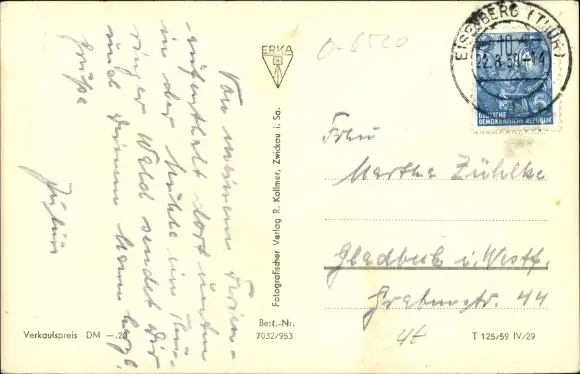 Von meinem Ferien-
aufenthalt dort unten
in der Mühle im Thü-
ringer Wald sendet Dir
und Deinem Mann herzl.
Grüße
ERKA
Fotografischer Verlag R. Kallmer, Zwickau i. Sa.
Verkaufspreis DM —.20
Best.-Nr.
7032/953
O-6520
EISENBERG (THÜR)
22.8.59-14
DEUTSCHE
DEMOKRATISCHE REPUBLIK
10
Frau
Martha Zühlke
Gladbeck i. Westf.
Grabenstr. 44
T 125/59 IV/29